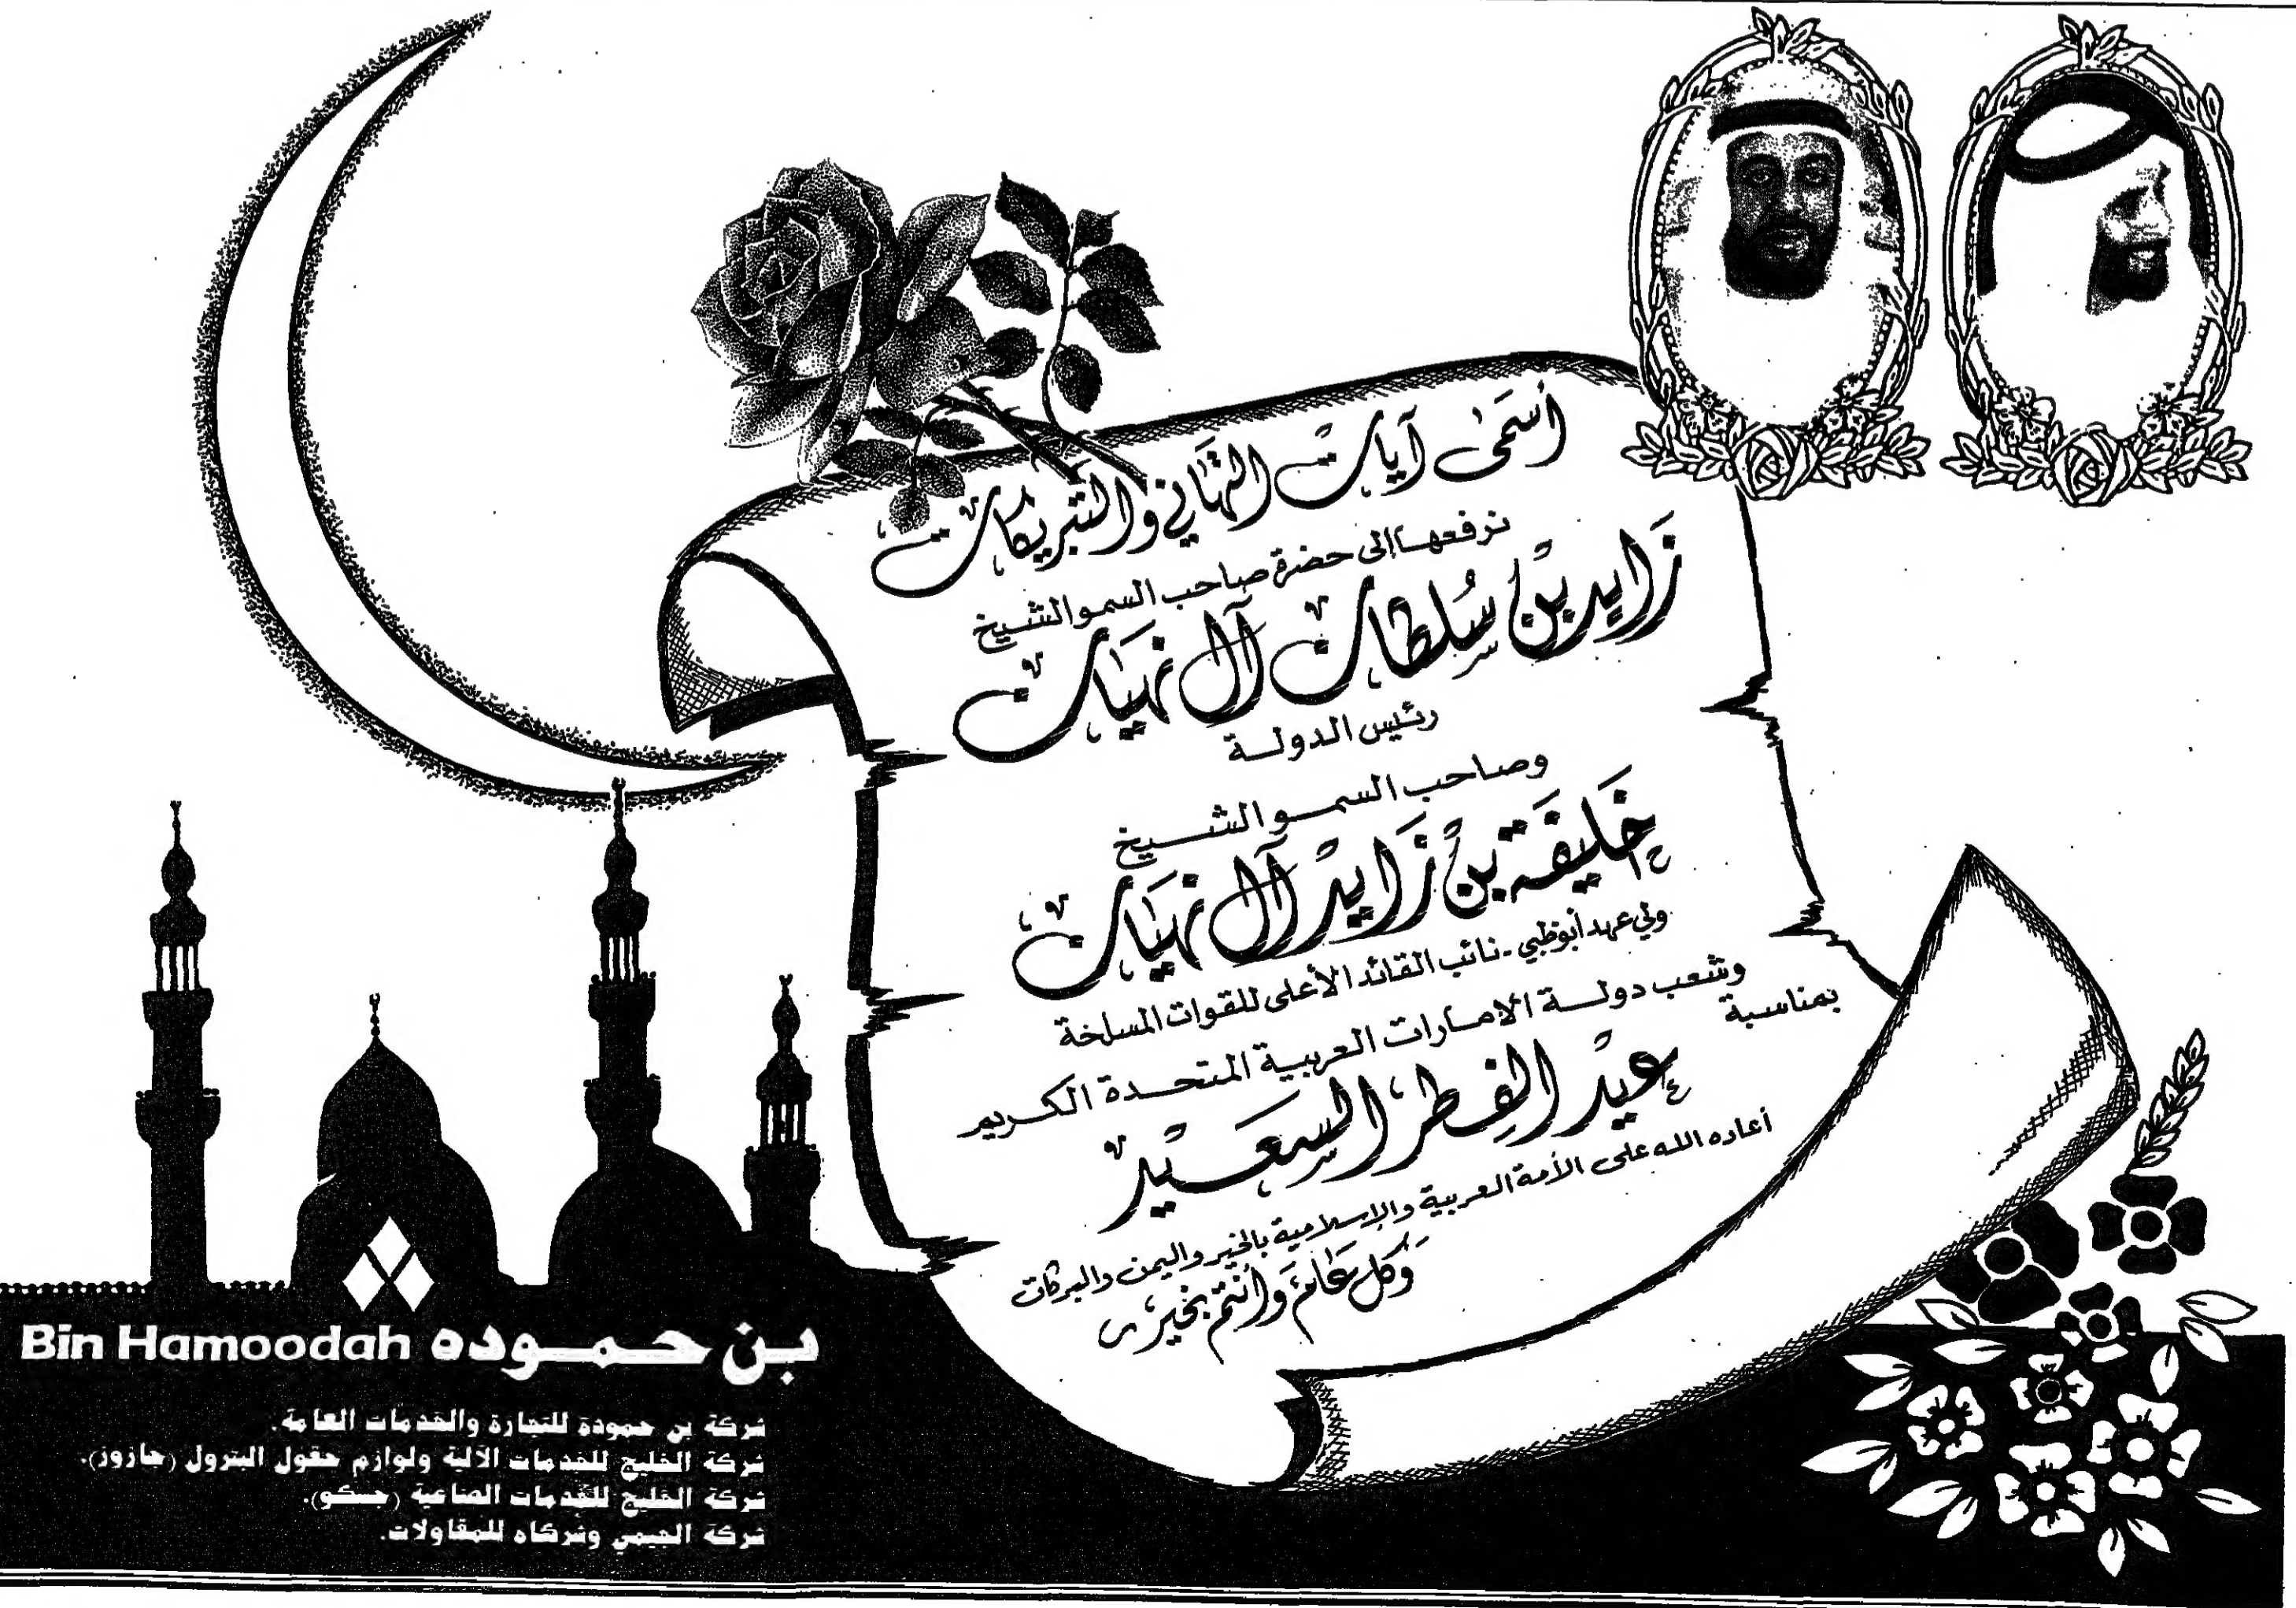 أسمى آيات التهاني والتبريكات
نرفعها إلى حضرة صاحب السمو الشيخ
زايد بن سلطان آل نهيان
رئيس الدولة
وصاحب السمو الشيخ
خليفة بن زايد آل نهيان
ولي عهد أبوظبي - نائب القائد الأعلى للقوات المسلحة
وشعب دولة الامارات العربية المتحدة الكريم
بمناسبة
عيد الفطر السعيد
أعاده الله على الأمة العربية والإسلامية بالخير واليمن والبركات
وكل عام وأنتم بخير
Bin Hamoodah بن حموده
شركة بن حمودة للتجارة والخدمات العامة.
شركة الخليج للخدمات الآلية ولوازم حقول البترول (جازوز).
شركة الخليج للخدمات الصناعية (جسكو).
شركة الجيمي وشركاه للمقاولات.